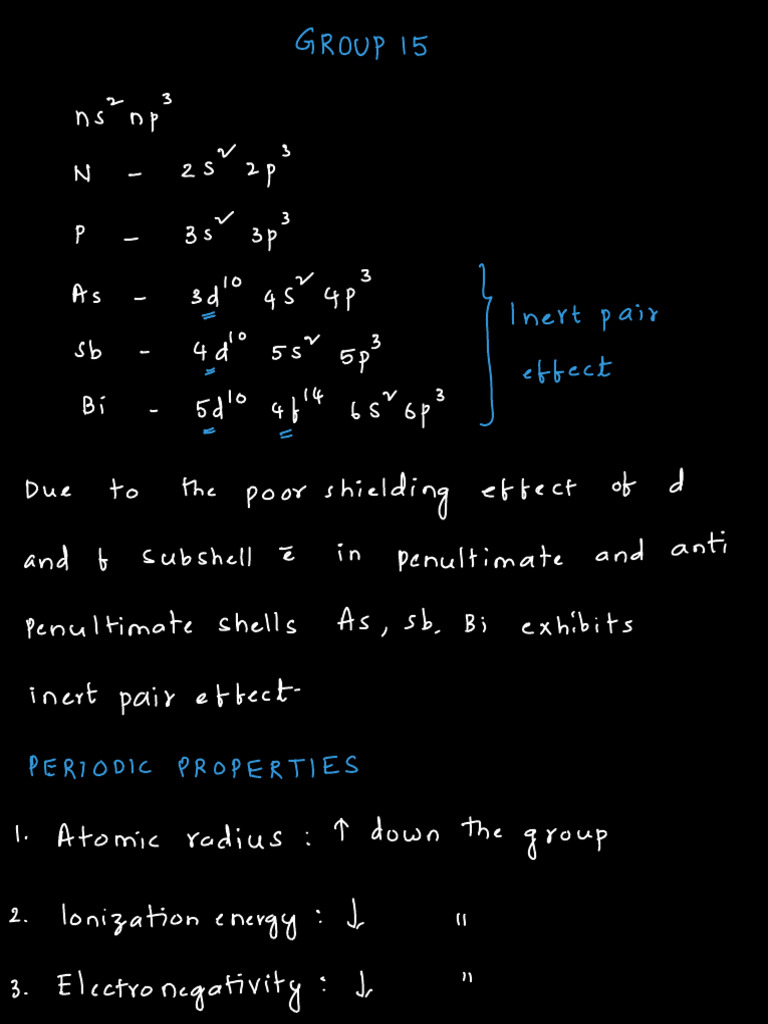 GROUP 15
ns² np³
N - 2s² 2p³
P - 3s² 3p³
As - 3d¹⁰ 4s² 4p³
Sb - 4d¹⁰ 5s² 5p³
Bi - 5d¹⁰ 4f¹⁴ 6s² 6p³
Inert pair
effect
Due to the poor shielding effect of d
and f subshell ē in penultimate and anti
penultimate shells As, Sb, Bi exhibits
inert pair effect-
PERIODIC PROPERTIES
1. Atomic radius : ↑ down the group
2. Ionization energy : ↓ "
3. Electronegativity : ↓ "